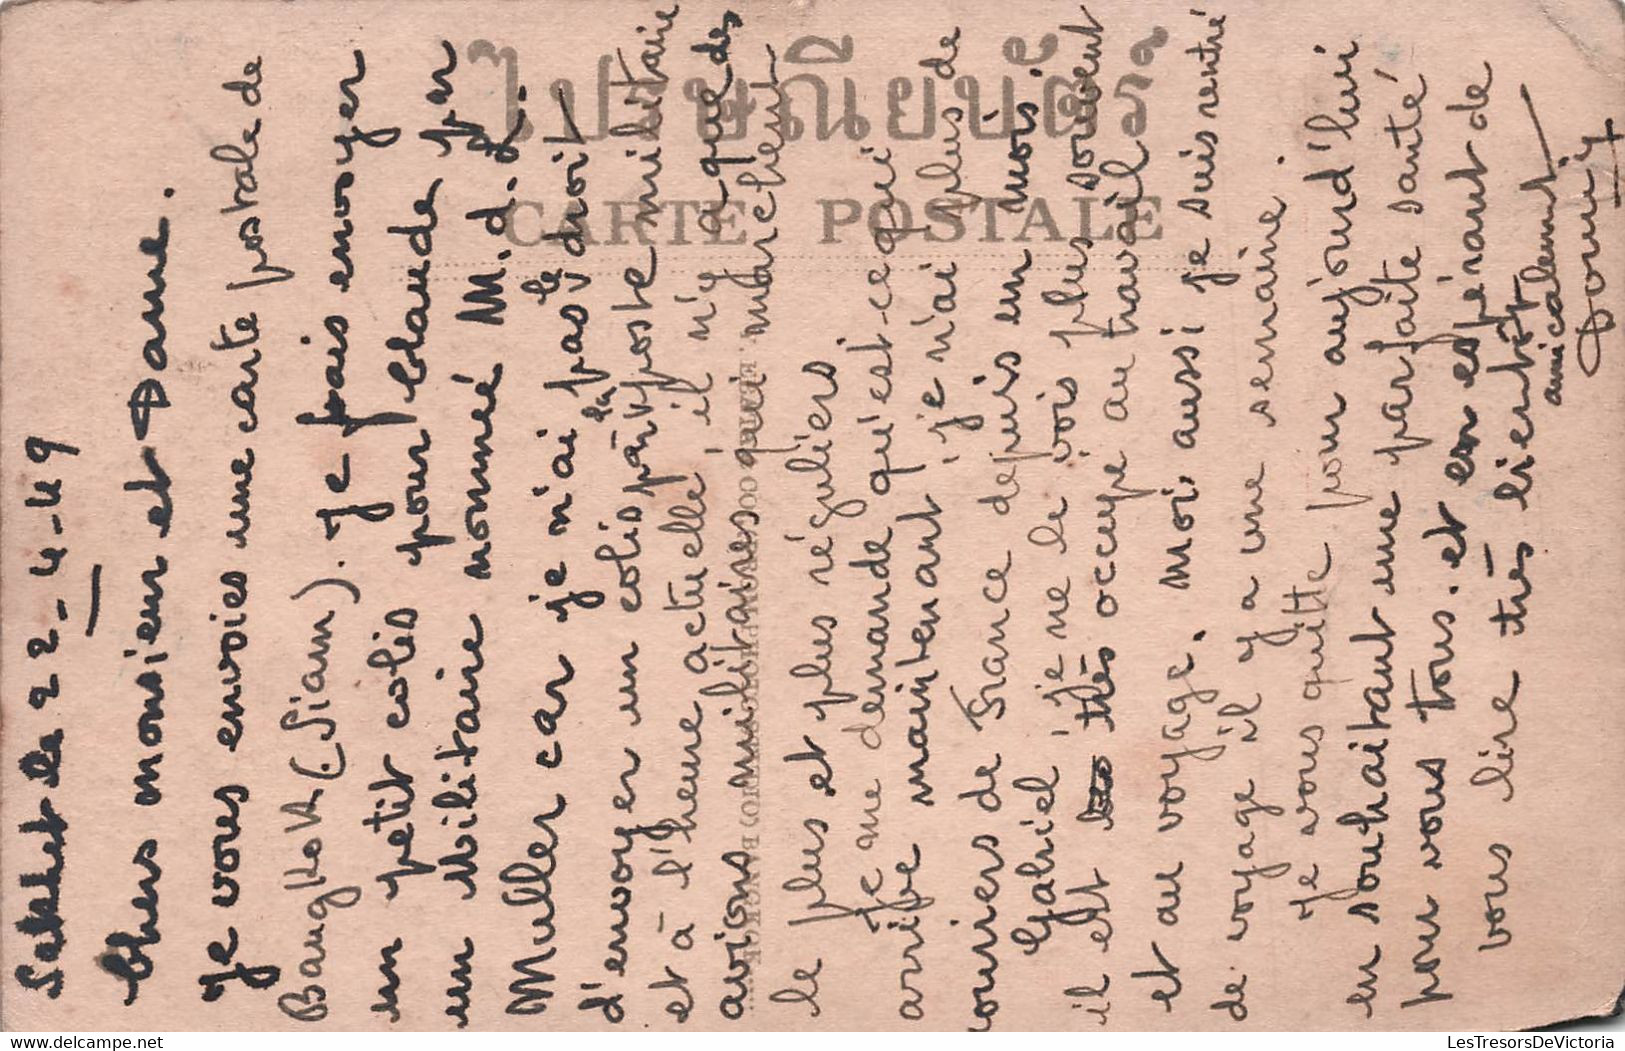 le 22-4-49
Chers monsieur et Dame.
Je vous envoies une carte postale de
Bangkok (Siam). Je fais envoyer
un petit colis pour Claude par
un Militaire nommé M.d.L.
Muller car je n'ai pas le droit
d'envoyer un colis par la poste militaire
et à l'heure actuelle, il n'y a que des
avions militaires qui marchent
le plus et plus réguliers.
Je me demande qu'est-ce qui
arrive maintenant, je n'ai plus de
couriers de France depuis un mois.
Gabriel, je ne le vois plus souvent
il est très occupe au travail
et au voyage. Moi aussi je suis rentré
de voyage il y a une semaine.
Je vous quitte pour aujourd'hui
en souhaitant une parfaite santé
pour vous tous. et en espérant de
vous lire très bientôt
amicalement
ไปรษณียบัตร
CARTE POSTALE
LesTresorsDeVictoria.com